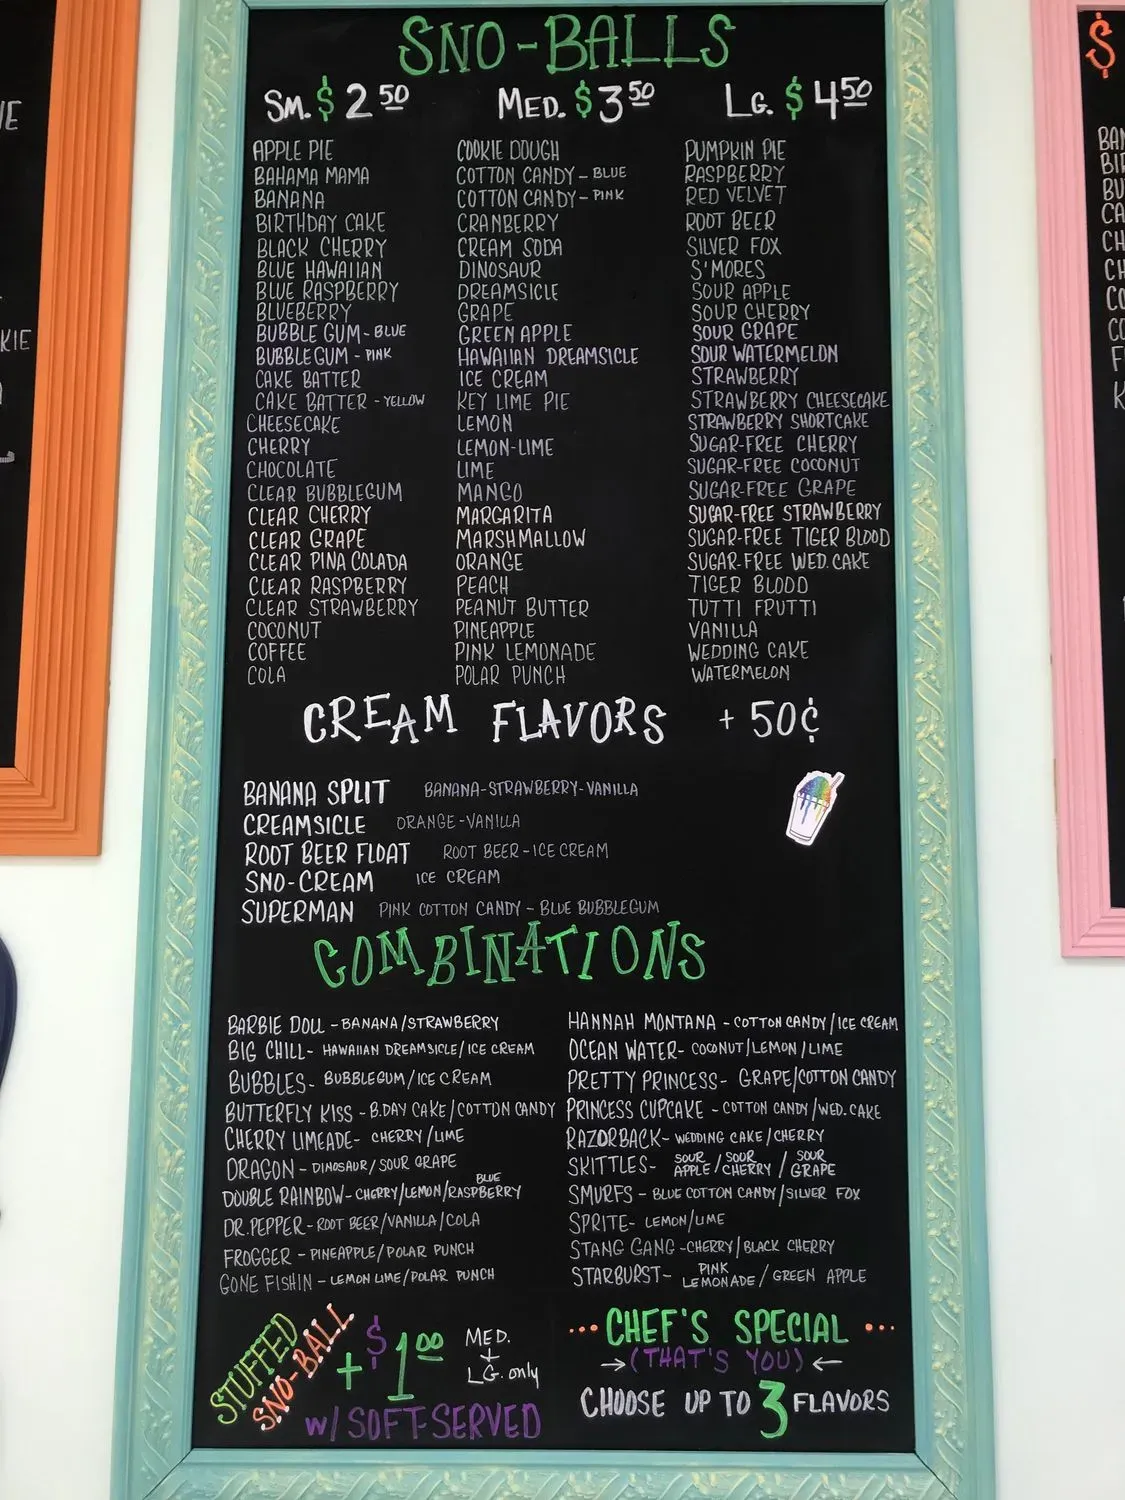 SNO-BALLS
SM. $2.50 MED. $3.50 LG. $4.50
APPLE PIE
BAHAMA MAMA
BANANA
BIRTHDAY CAKE
BLACK CHERRY
BLUE HAWAIIAN
BLUE RASPBERRY
BLUEBERRY
BUBBLE GUM - BLUE
BUBBLE GUM - PINK
CAKE BATTER
CAKE BATTER - YELLOW
CHEESECAKE
CHERRY
CHOCOLATE
CLEAR BUBBLEGUM
CLEAR CHERRY
CLEAR GRAPE
CLEAR PINA COLADA
CLEAR RASPBERRY
CLEAR STRAWBERRY
COCONUT
COFFEE
COLA
COOKIE DOUGH
COTTON CANDY - BLUE
COTTON CANDY - PINK
CRANBERRY
CREAM SODA
DINOSAUR
DREAMSICLE
GRAPE
GREEN APPLE
HAWAIIAN DREAMSICLE
ICE CREAM
KEY LIME PIE
LEMON
LEMON-LIME
LIME
MANGO
MARGARITA
MARSHMALLOW
ORANGE
PEACH
PEANUT BUTTER
PINEAPPLE
PINK LEMONADE
POLAR PUNCH
PUMPKIN PIE
RASPBERRY
RED VELVET
ROOT BEER
SILVER FOX
S'MORES
SOUR APPLE
SOUR CHERRY
SOUR GRAPE
SOUR WATERMELON
STRAWBERRY
STRAWBERRY CHEESECAKE
STRAWBERRY SHORTCAKE
SUGAR-FREE CHERRY
SUGAR-FREE COCONUT
SUGAR-FREE GRAPE
SUGAR-FREE STRAWBERRY
SUGAR-FREE TIGER BLOOD
SUGAR-FREE WED. CAKE
TIGER BLOOD
TUTTI FRUTTI
VANILLA
WEDDING CAKE
WATERMELON
CREAM FLAVORS + 50¢
BANANA SPLIT BANANA-STRAWBERRY-VANILLA
CREAMSICLE ORANGE-VANILLA
ROOT BEER FLOAT ROOT BEER-ICE CREAM
SNO-CREAM ICE CREAM
SUPERMAN PINK COTTON CANDY - BLUE BUBBLEGUM
COMBINATIONS
BARBIE DOLL - BANANA/STRAWBERRY
BIG CHILL - HAWAIIAN DREAMSICLE/ICE CREAM
BUBBLES - BUBBLEGUM/ICE CREAM
BUTTERFLY KISS - B.DAY CAKE/COTTON CANDY
CHERRY LIMEADE - CHERRY/LIME
DRAGON - DINOSAUR/SOUR GRAPE
DOUBLE RAINBOW - CHERRY/LEMON/BLUE RASPBERRY
DR. PEPPER - ROOT BEER/VANILLA/COLA
FROGGER - PINEAPPLE/POLAR PUNCH
GONE FISHIN - LEMON LIME/POLAR PUNCH
HANNAH MONTANA - COTTON CANDY/ICE CREAM
OCEAN WATER - COCONUT/LEMON/LIME
PRETTY PRINCESS - GRAPE/COTTON CANDY
PRINCESS CUPCAKE - COTTON CANDY/WED. CAKE
RAZORBACK - WEDDING CAKE/CHERRY
SKITTLES - SOUR APPLE/SOUR CHERRY/SOUR GRAPE
SMURFS - BLUE COTTON CANDY/SILVER FOX
SPRITE - LEMON/LIME
STANG GANG - CHERRY/BLACK CHERRY
STARBURST - PINK LEMONADE/GREEN APPLE
STUFFED
SNO-BALL
+ $1.00 MED. + LG. only
w/ SOFT-SERVED
... CHEF'S SPECIAL ...
→ (THAT'S YOU) ←
CHOOSE UP TO 3 FLAVORS